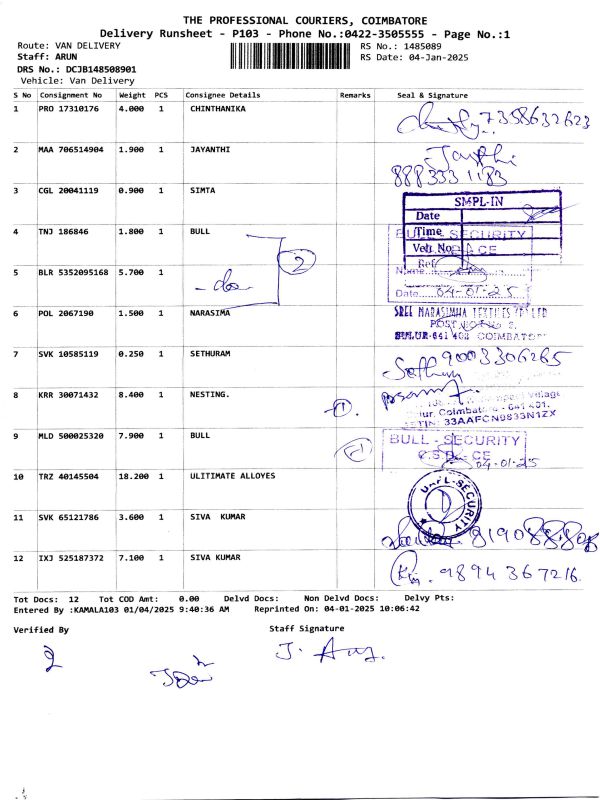 THE PROFESSIONAL COURIERS, COIMBATORE
Delivery Runsheet - P103 - Phone No.:0422-3505555 - Page No.:1
Route: VAN DELIVERY RS No.: 1485089
Staff: ARUN RS Date: 04-Jan-2025
DRS No.: DCJB148508901
Vehicle: Van Delivery
S No Consignment No Weight PCS Consignee Details Remarks Seal & Signature
1 PRO 17310176 4.000 1 CHINTHANIKA 7358632623
2 MAA 706514904 1.900 1 JAYANTHI
888333 1183
3 CGL 20041119 0.900 1 SIMTA
SMPL-IN
Date
4 TNJ 186846 1.800 1 BULL
Time
BULL - SECURITY
Veh No
2
5 BLR 5352095168 5.700 1
Ref
- do -
Name
Date 04-01-25
6 POL 2067190 1.500 1 NARASIMA
SREE NARASIMHA TEXTILES
SULUR-641 402 COIMBATORE
7 SVK 10585119 0.250 1 SETHURAM 9003306265
8 KRR 30071432 8.400 1 NESTING.
1
Coimbatore - 641 401.
33AAFCN9833N1ZX
9 MLD 500025320 7.900 1 BULL
BULL - SECURITY
04-01-25
10 TRZ 40145504 18.200 1 ULITIMATE ALLOYES
SECURITY
11 SVK 65121786 3.600 1 SIVA KUMAR
12 IXJ 525187372 7.100 1 SIVA KUMAR 9894367216
Tot Docs: 12 Tot COD Amt: 0.00 Delvd Docs: Non Delvd Docs: Delvy Pts:
Entered By :KAMALA103 01/04/2025 9:40:36 AM Reprinted On: 04-01-2025 10:06:42
Verified By Staff Signature